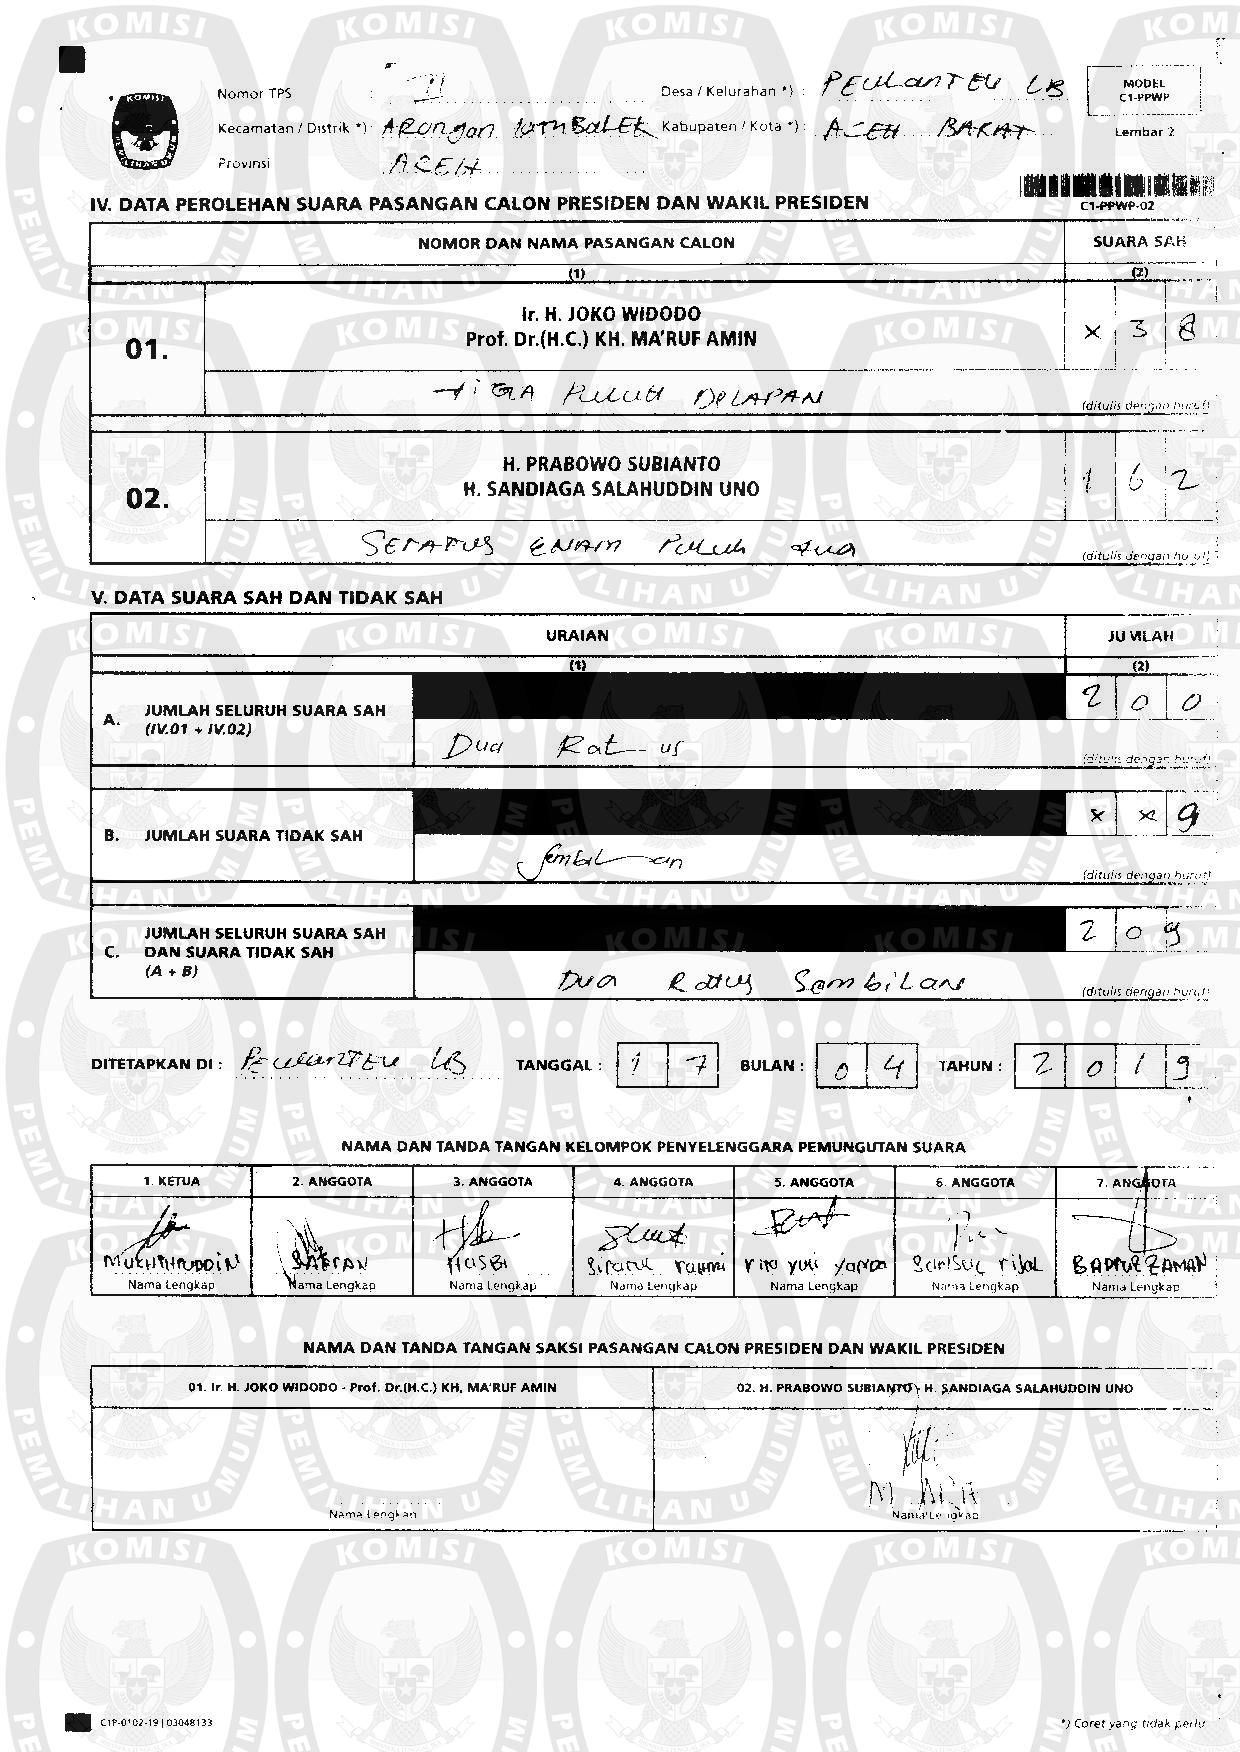 Nomor TPS : II Desa / Kelurahan *) : PEULANTEU LB MODEL C1-PPWP
Kecamatan / Distrik *) : ARongan LamBALEK Kabupaten / Kota *) : ACEH BARAT Lembar 2
Provinsi ACEH
IV. DATA PEROLEHAN SUARA PASANGAN CALON PRESIDEN DAN WAKIL PRESIDEN C1-PPWP-02
NOMOR DAN NAMA PASANGAN CALON SUARA SAH
(1) (2)
01. Ir. H. JOKO WIDODO
Prof. Dr.(H.C.) KH. MA'RUF AMIN X 3 8
TiGA PULUH DELAPAN (ditulis dengan huruf)
02. H. PRABOWO SUBIANTO
H. SANDIAGA SALAHUDDIN UNO 1 6 2
SERATUS ENAM PULUH dua (ditulis dengan huruf)
V. DATA SUARA SAH DAN TIDAK SAH
URAIAN JUMLAH
(1) (2)
A. JUMLAH SELURUH SUARA SAH
(IV.01 + IV.02) 2 0 0
Dua Ratus (ditulis dengan huruf)
B. JUMLAH SUARA TIDAK SAH X X 9
Sembilan (ditulis dengan huruf)
C. JUMLAH SELURUH SUARA SAH
DAN SUARA TIDAK SAH
(A + B) 2 0 9
Dua Ratus Sembilan (ditulis dengan huruf)
DITETAPKAN DI : PEULANTEU LB TANGGAL : 1 7 BULAN : 0 4 TAHUN : 2 0 1 9
NAMA DAN TANDA TANGAN KELOMPOK PENYELENGGARA PEMUNGUTAN SUARA
1. KETUA 2. ANGGOTA 3. ANGGOTA 4. ANGGOTA 5. ANGGOTA 6. ANGGOTA 7. ANGGOTA
MUKHTARUDDIN SAFRAN HASBI rahmi rijal BADRUZZAMAN
Nama Lengkap Nama Lengkap Nama Lengkap Nama Lengkap Nama Lengkap Nama Lengkap Nama Lengkap
NAMA DAN TANDA TANGAN SAKSI PASANGAN CALON PRESIDEN DAN WAKIL PRESIDEN
01. Ir. H. JOKO WIDODO - Prof. Dr.(H.C.) KH. MA'RUF AMIN 02. H. PRABOWO SUBIANTO - H. SANDIAGA SALAHUDDIN UNO
Nama Lengkap Nama Lengkap
C1P-0102-19 | 03048133 *) Coret yang tidak perlu